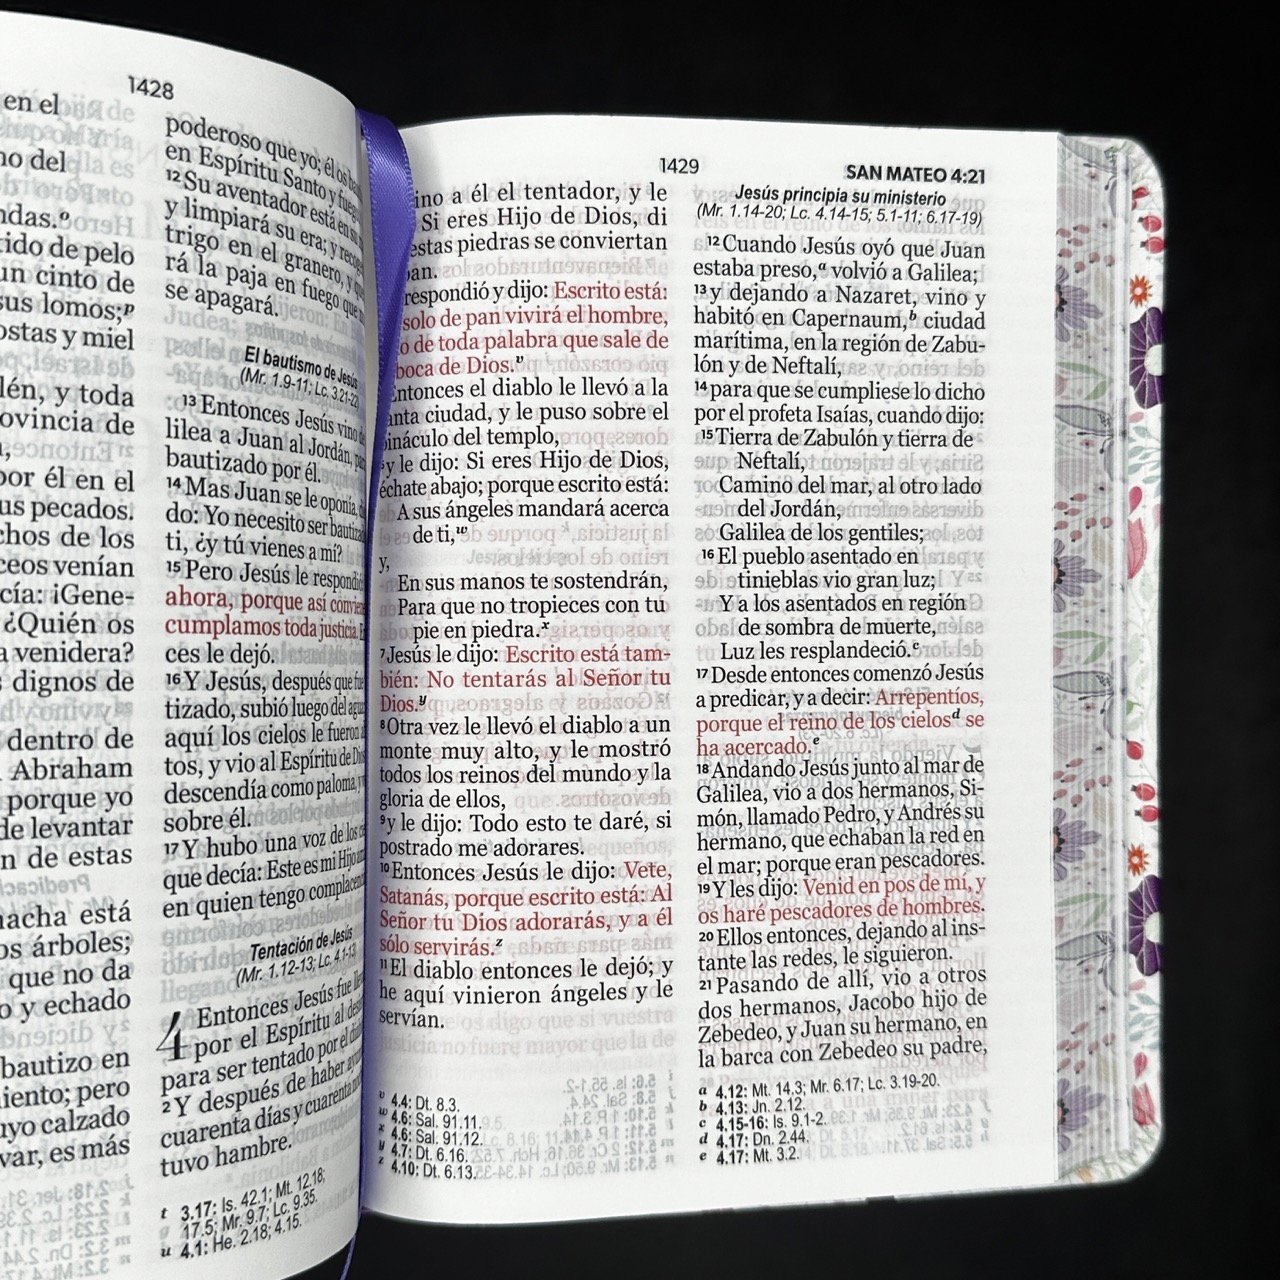 1428
en el
no del
ndas.º
tido de pelo
un cinto de
sus lomos;ᵖ
ostas y miel
lén, y toda
ovincia de
por él en el
us pecados.
chos de los
ceos venían
cía: ¡Gene-
¿Quién os
a venidera?
s dignos de
dentro de
Abraham
porque yo
de levantar
n de estas
hacha está
os árboles;
que no da
o y echado
bautizo en
iento; pero
uyo calzado
var, es más
poderoso que yo; él os
en Espíritu Santo y fuego
12 Su aventador está en su
y limpiará su era; y recoge
trigo en el granero, y que
rá la paja en fuego que
se apagará.
El bautismo de Jesús
(Mr. 1.9-11; Lc. 3.21-22)
13 Entonces Jesús vino de
lilea a Juan al Jordán,
bautizado por él.
14 Mas Juan se le oponía,
do: Yo necesito ser bautizad
ti, ¿y tú vienes a mí?
15 Pero Jesús le respondió
ahora, porque así convie
cumplamos toda justicia.
ces le dejó.
16 Y Jesús, después que fue
tizado, subió luego del agua
aquí los cielos le fueron a
tos, y vio al Espíritu de Dios
descendía como paloma,
sobre él.
17 Y hubo una voz de los
que decía: Este es mi Hijo
en quien tengo complacen
Tentación de Jesús
(Mr. 1.12-13; Lc. 4.1-13
4 Entonces Jesús fue
por el Espíritu al
para ser tentado por el
2 Y después de haber
cuarenta días y cuarenta
tuvo hambre.
t 3.17: Is. 42.1; Mt. 12.18;
17.5; Mr. 9.7; Lc. 9.35.
u 4.1: He. 2.18; 4.15.
1429
SAN MATEO 4:21
ino a él el tentador, y le
Si eres Hijo de Dios, di
estas piedras se conviertan
pan.
respondió y dijo: Escrito está:
solo de pan vivirá el hombre,
o de toda palabra que sale de
boca de Dios.ᵛ
Entonces el diablo le llevó a la
anta ciudad, y le puso sobre el
pináculo del templo,
y le dijo: Si eres Hijo de Dios,
échate abajo; porque escrito está:
A sus ángeles mandará acerca
de ti,ʷ
y,
En sus manos te sostendrán,
Para que no tropieces con tu
pie en piedra.ˣ
7 Jesús le dijo: Escrito está tam-
bién: No tentarás al Señor tu
Dios.ʸ
8 Otra vez le llevó el diablo a un
monte muy alto, y le mostró
todos los reinos del mundo y la
gloria de ellos,
9 y le dijo: Todo esto te daré, si
postrado me adorares.
10 Entonces Jesús le dijo: Vete,
Satanás, porque escrito está: Al
Señor tu Dios adorarás, y a él
sólo servirás.ᶻ
11 El diablo entonces le dejó; y
he aquí vinieron ángeles y le
servían.
v 4.4: Dt. 8.3.
w 4.6: Sal. 91.11.
x 4.6: Sal. 91.12.
y 4.7: Dt. 6.16.
z 4.10: Dt. 6.13.
Jesús principia su ministerio
(Mr. 1.14-20; Lc. 4.14-15; 5.1-11; 6.17-19)
12 Cuando Jesús oyó que Juan
estaba preso,ᵃ volvió a Galilea;
13 y dejando a Nazaret, vino y
habitó en Capernaum,ᵇ ciudad
marítima, en la región de Zabu-
lón y de Neftalí,
14 para que se cumpliese lo dicho
por el profeta Isaías, cuando dijo:
15 Tierra de Zabulón y tierra de
Neftalí,
Camino del mar, al otro lado
del Jordán,
Galilea de los gentiles;
16 El pueblo asentado en
tinieblas vio gran luz;
Y a los asentados en región
de sombra de muerte,
Luz les resplandeció.ᶜ
17 Desde entonces comenzó Jesús
a predicar, y a decir: Arrepentíos,
porque el reino de los cielosᵈ se
ha acercado.ᵉ
18 Andando Jesús junto al mar de
Galilea, vio a dos hermanos, Si-
món, llamado Pedro, y Andrés su
hermano, que echaban la red en
el mar; porque eran pescadores.
19 Y les dijo: Venid en pos de mí, y
os haré pescadores de hombres.
20 Ellos entonces, dejando al ins-
tante las redes, le siguieron.
21 Pasando de allí, vio a otros
dos hermanos, Jacobo hijo de
Zebedeo, y Juan su hermano, en
la barca con Zebedeo su padre,
a 4.12: Mt. 14.3; Mr. 6.17; Lc. 3.19-20.
b 4.13: Jn. 2.12.
c 4.15-16: Is. 9.1-2.
d 4.17: Dn. 2.44.
e 4.17: Mt. 3.2.